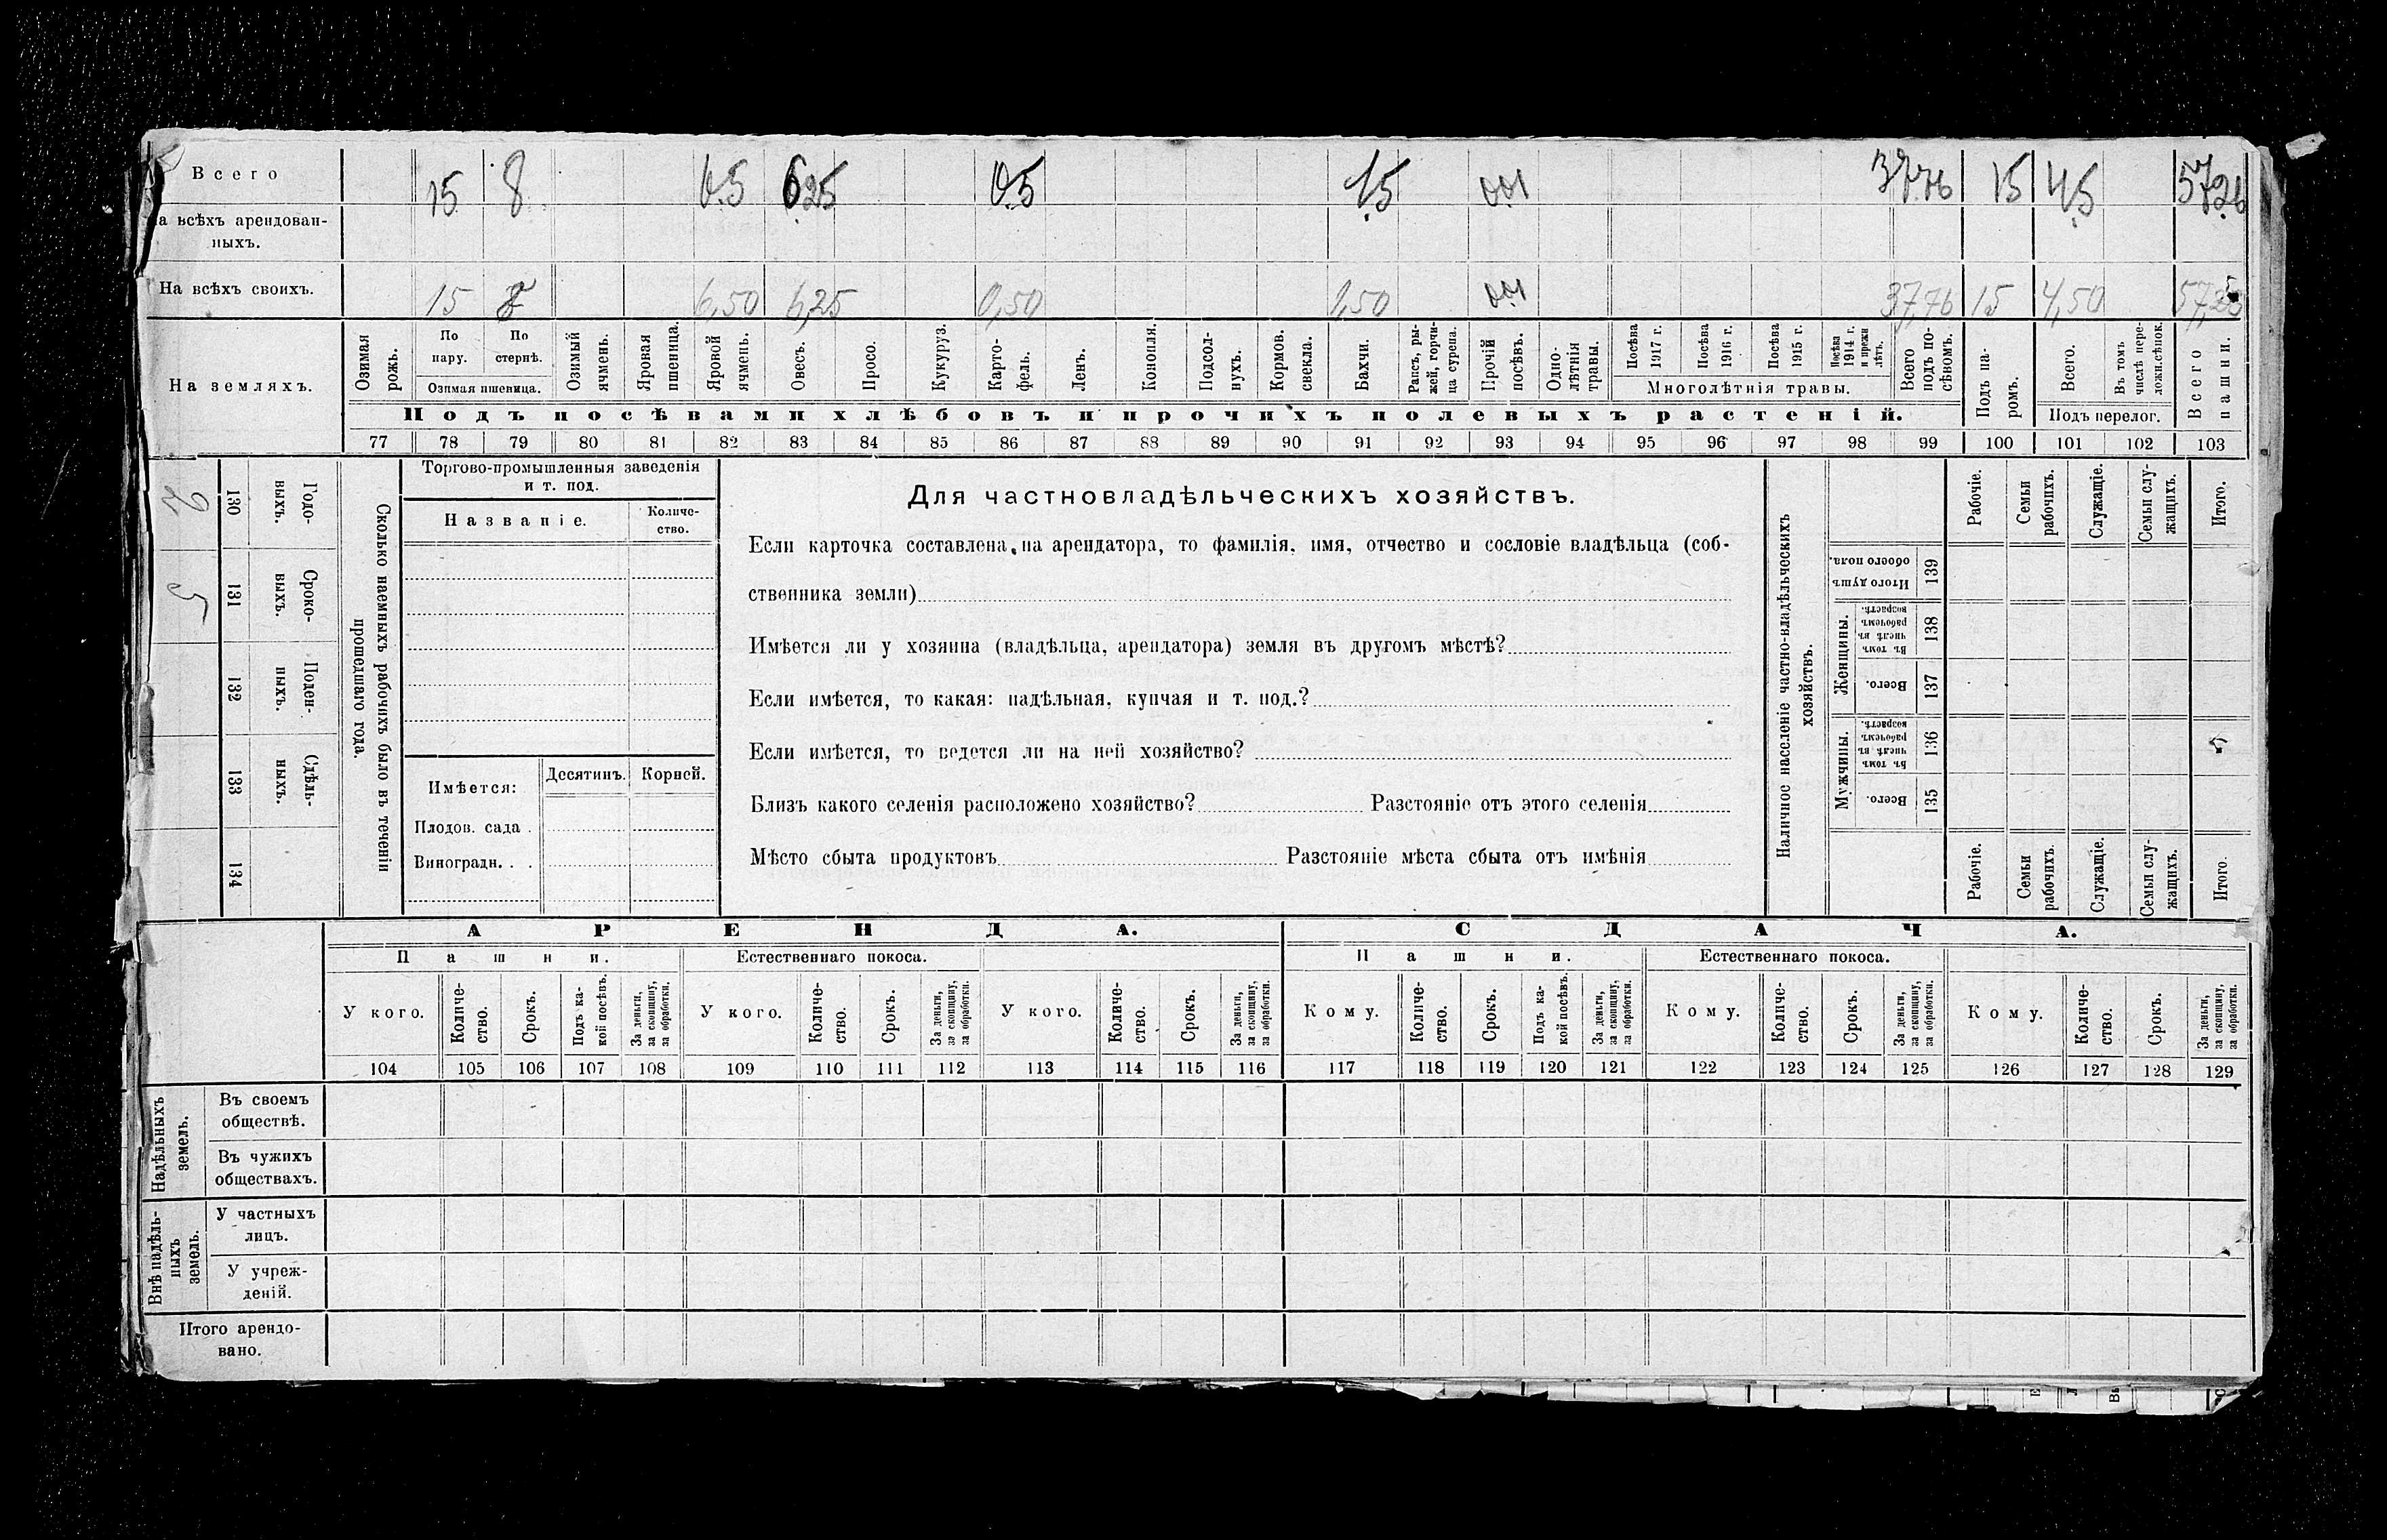 Всего 15 8 6.5 6.25 0.5 1.5 0.01 37.76 15 4.5 57.26
На всѣхъ арендован-
ныхъ.
На всѣхъ своихъ. 15 8 6,50 6,25 0,50 1,50 0.01 37,76 15 4,50
На земляхъ.
Озимая рожь.
По пару.
По стернѣ.
Озимая пшеница.
Озимый ячмень.
Яровая пшеница.
Яровой ячмень.
Овесъ.
Просо.
Кукуруз.
Карто-
фель.
Ленъ.
Конопля.
Подсол-
нухъ.
Кормов.
свекла.
Бахчи.
Рапсъ, ры-
жей, горчи-
ца сурепа.
Прочій
посѣвъ.
Одно-
лѣтнія
травы.
Посѣва 1917 г.
Посѣва 1916 г.
Посѣва 1915 г.
Посѣва 1914 г. и прежн лѣтъ.
Многолѣтнія травы.
Всего
подъ по-
сѣвомъ.
Подъ посѣвами хлѣбовъ и прочихъ полевыхъ растеній.
Подъ па-
ромъ.
Всего.
Въ томъ
числѣ пере-
ложн.сѣнок.
Подъ перелог.
Всего
пашни.
77 78 79 80 81 82 83 84 85 86 87 88 89 90 91 92 93 94 95 96 97 98 99 100 101 102 103
130 Годо-
выхъ.
131 Сроко-
выхъ.
132 Поден-
ныхъ.
133 Сдѣль-
ныхъ.
134
Сколько наемныхъ рабочихъ было въ теченіи
прошедшаго года.
Торгово-промышленныя заведенія
и т. под.
Названіе.
Количе-
ство.
Имѣется:
Десятинъ. Корней.
Плодов. сада .
Виноградн. . .
Для частновладѣльческихъ хозяйствъ.
Если карточка составлена на арендатора, то фамилія, имя, отчество и сословіе владѣльца (соб-
ственника земли)
Имѣется ли у хозяина (владѣльца, арендатора) земля въ другомъ мѣстѣ?
Если имѣется, то какая: надѣльная, купчая и т. под.?
Если имѣется, то ведется ли на ней хозяйство?
Близъ какого селенія расположено хозяйство? Разстояніе отъ этого селенія
Мѣсто сбыта продуктовъ Разстояніе мѣста сбыта отъ имѣнія
Наличное населеніе частно-владѣльческихъ
хозяйствъ.
Рабочіе.
Семьи
рабочихъ.
Служащіе.
Семьи слу-
жащихъ.
Итого.
Итого душъ
обоего пола.
139
Женщины.
Въ томъ
числѣ въ
рабочемъ
возрастѣ.
138
Всего.
137
Мужчины.
Въ томъ
числѣ въ
рабочемъ
возрастѣ.
136
Всего.
135
Рабочіе.
Семьи
рабочихъ.
Служащіе.
Семьи слу-
жащихъ.
Итого.
АРЕНДА. СДАЧА.
Пашни. Естественнаго покоса. Пашни. Естественнаго покоса.
У кого.
Количе-
ство.
Срокъ.
Подъ ка-
кой посѣвъ.
За деньги,
за скопщину,
за обработки.
У кого.
Количе-
ство.
Срокъ.
За деньги,
за скопщину,
за обработки.
У кого.
Количе-
ство.
Срокъ.
За деньги,
за скопщину,
за обработки.
Кому.
Количе-
ство.
Срокъ.
Подъ ка-
кой посѣвъ.
За деньги,
за скопщину,
за обработки.
Кому.
Количе-
ство.
Срокъ.
За деньги,
за скопщину,
за обработки.
Кому.
Количе-
ство.
Срокъ.
За деньги,
за скопщину,
за обработки.
104 105 106 107 108 109 110 111 112 113 114 115 116 117 118 119 120 121 122 123 124 125 126 127 128 129
Надѣльныхъ
земель.
Въ своемъ
обществѣ.
Въ чужихъ
обществахъ.
Внѣ надѣль-
ныхъ
земель.
У частныхъ
лицъ.
У учреж-
деній.
Итого арендо-
вано.